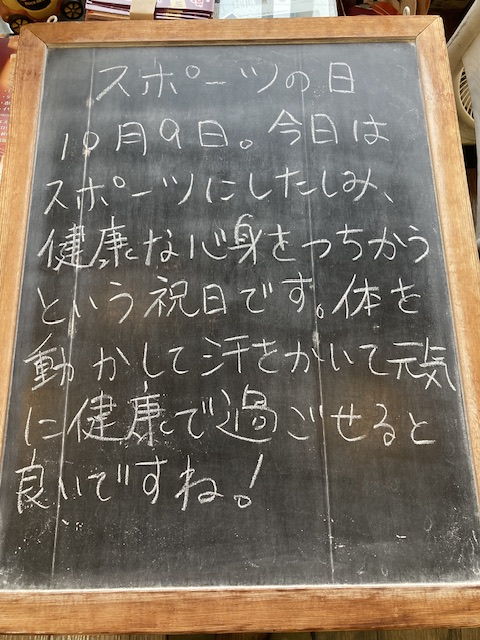 スポーツの日
10月9日。今日は
スポーツにしたしみ、
健康な心身をつちかう
という祝日です。体を
動かして汗をかいて元気
に健康で過ごせると
良いですね。!